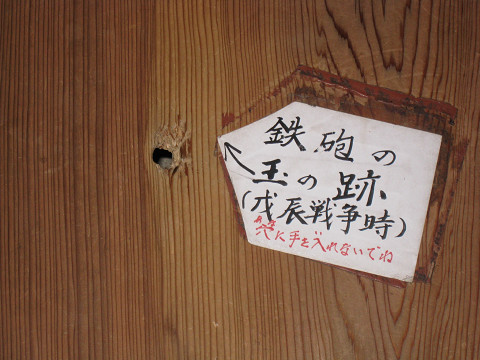 鉄砲の
玉の跡
(戊辰戦争時)
穴に手を入れないでね